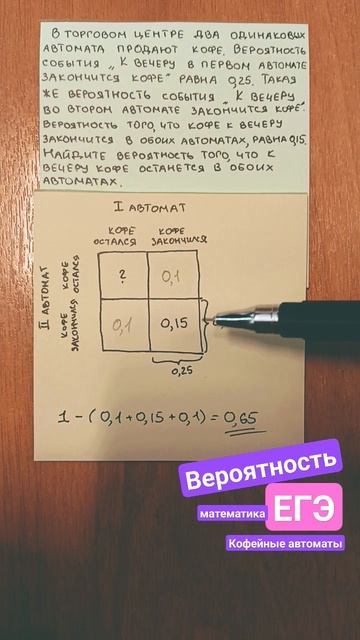 В ТОРГОВОМ ЦЕНТРЕ ДВА ОДИНАКОВЫХ
АВТОМАТА ПРОДАЮТ КОФЕ. ВЕРОЯТНОСТЬ
СОБЫТИЯ „К ВЕЧЕРУ В ПЕРВОМ АВТОМАТЕ
ЗАКОНЧИТСЯ КОФЕ" РАВНА 0,25. ТАКАЯ
ЖЕ ВЕРОЯТНОСТЬ СОБЫТИЯ „К ВЕЧЕРУ
ВО ВТОРОМ АВТОМАТЕ ЗАКОНЧИТСЯ КОФЕ".
ВЕРОЯТНОСТЬ ТОГО, ЧТО КОФЕ К ВЕЧЕРУ
ЗАКОНЧИТСЯ В ОБОИХ АВТОМАТАХ, РАВНА 0,15.
НАЙДИТЕ ВЕРОЯТНОСТЬ ТОГО, ЧТО К
ВЕЧЕРУ КОФЕ ОСТАНЕТСЯ В ОБОИХ
АВТОМАТАХ.
I АВТОМАТ
КОФЕ ОСТАЛСЯ
КОФЕ ЗАКОНЧИЛСЯ
II АВТОМАТ
КОФЕ ОСТАЛСЯ
КОФЕ ЗАКОНЧИЛСЯ
? 0,1
0,1 0,15
0,25
1 - (0,1+0,15+0,1) = 0,65
Вероятность
математика ЕГЭ
Кофейные автоматы